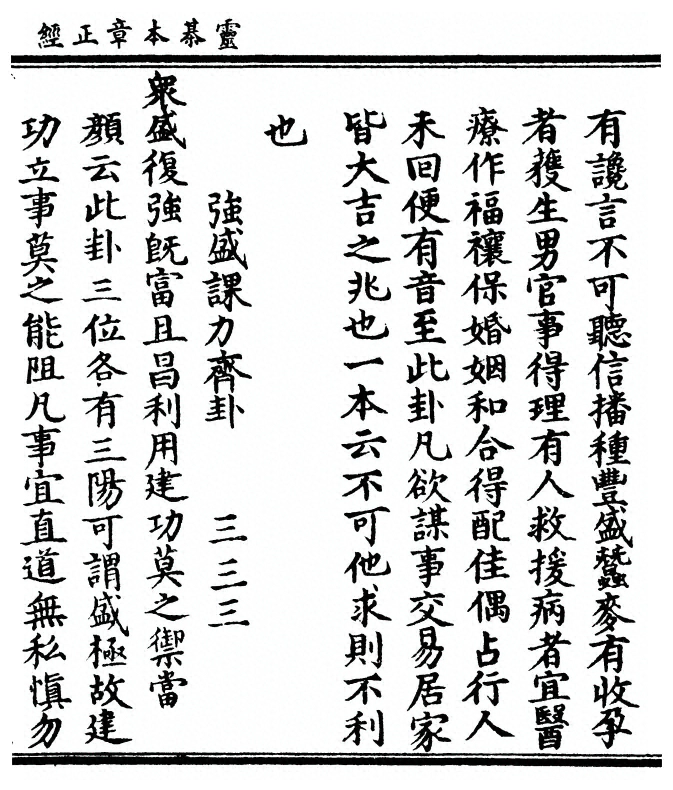 靈棊本章正經
有讒言不可聽信播種豐盛蠶麥有收孕
者蓰生男官事得理有人救援病者宜醫
療作福禳保婚姻和合得配佳偶占行人
未回便有音至此卦凡欲謀事交易居家
皆大吉之兆也一本云不可他求則不利
也
強盛課力齊卦 三三三
衆盛復強旣富且昌利用建功莫之禦當
顏云此卦三位各有三陽可謂盛極故建
功立事莫之能阻凡事宜直道無私慎勿